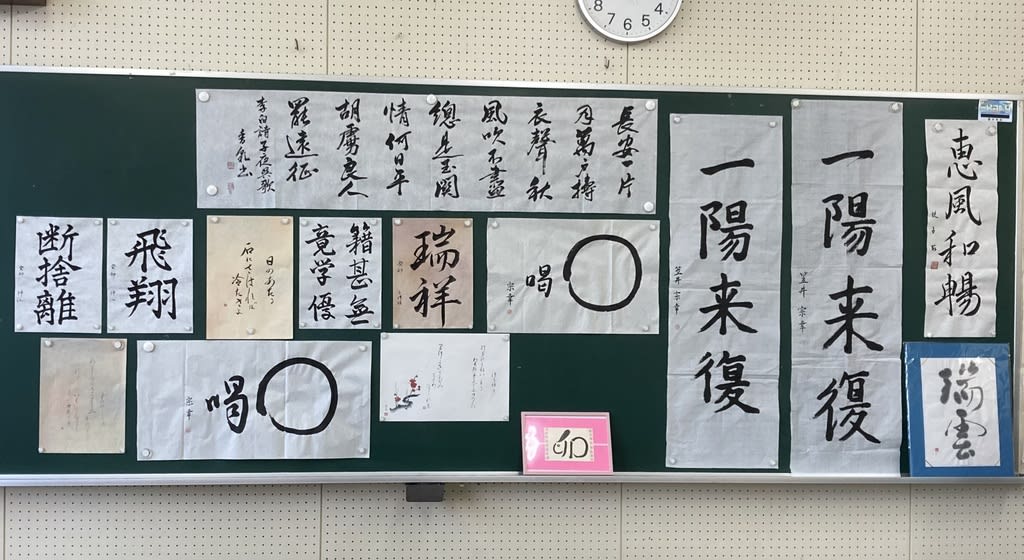 8 7 6 5 4
長安一片
月萬戸擣
衣聲秋
風吹不盡
總是玉関
情何日平
胡虜良人
罷遠征
李白詩子夜呉歌
一陽来復
笠井宗幸
一陽来復
笠井宗幸
恵風和暢
喝
宗幸
瑞祥
籍甚無
竟学優
日のあたる
石にさはれば
冷たさよ
飛翔
断捨離
瑞雲
卯
喝
宗幸